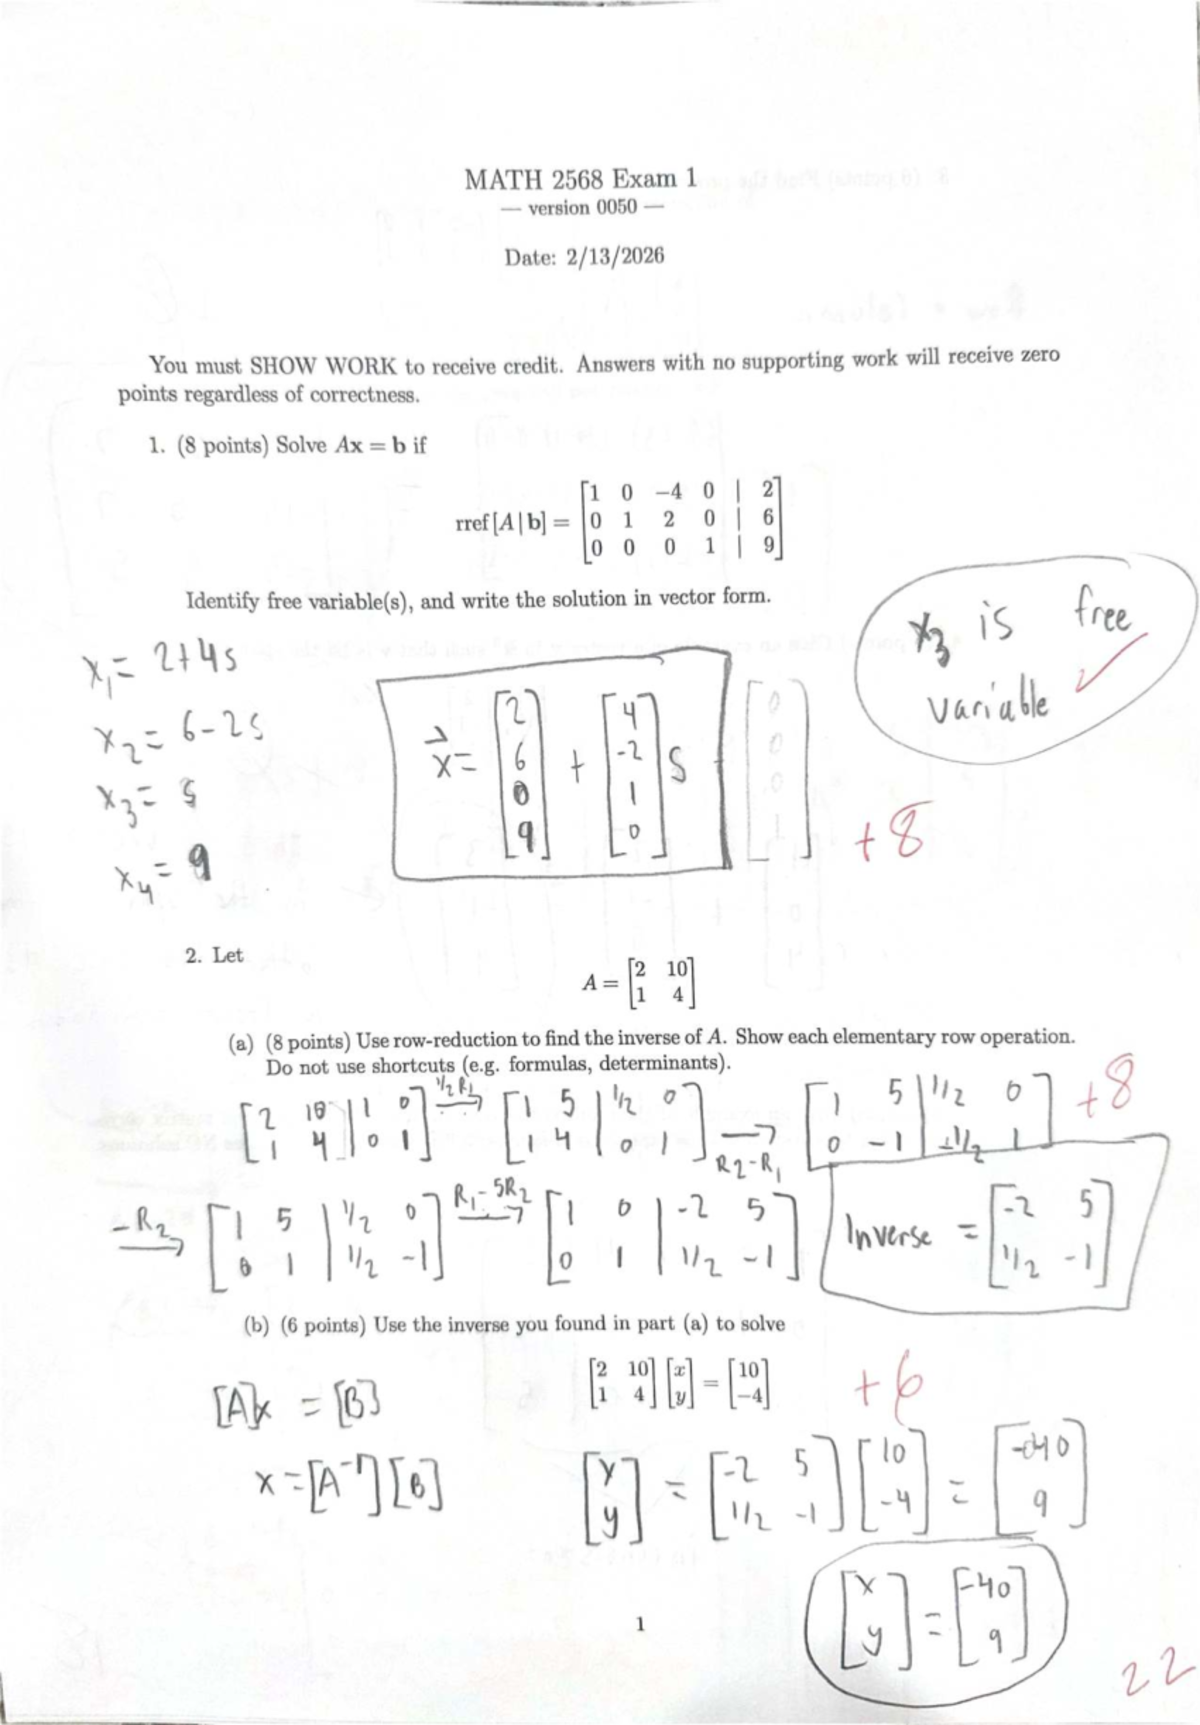 MATH 2568 Exam 1
— version 0050 —
Date: 2/13/2026
You must SHOW WORK to receive credit. Answers with no supporting work will receive zero
points regardless of correctness.
1. (8 points) Solve Ax = b if
rref[A|b] = [1 0 −4 0 | 2]
[0 1 2 0 | 6]
[0 0 0 1 | 9]
Identify free variable(s), and write the solution in vector form.
x₃ is free
variable ✓
x₁ = 2+4s
x₂ = 6-2s
x₃ = s
x₄ = 9
x⃗ = [2 6 0 9] + [4 -2 1 0] s
[0 0 0 1]
+8
2. Let
A = [2 10]
[1 4]
(a) (8 points) Use row-reduction to find the inverse of A. Show each elementary row operation.
Do not use shortcuts (e.g. formulas, determinants).
+8
[2 10 | 1 0] ½R₁ → [1 5 | 1/2 0] → [1 5 | 1/2 0]
[1 4 | 0 1] [1 4 | 0 1] R₂-R₁ [0 -1 | -1/2 1]
-R₂ → [1 5 | 1/2 0] R₁-5R₂ → [1 0 | -2 5]
[0 1 | 1/2 -1] [0 1 | 1/2 -1]
Inverse = [-2 5]
[1/2 -1]
(b) (6 points) Use the inverse you found in part (a) to solve
[2 10] [x] = [10]
[1 4] [y] [−4]
+6
[A]x = [B]
x = [A⁻¹][B]
[x] = [-2 5] [10] = [-40]
[y] [1/2 -1] [-4] [9]
[x] = [-40]
[y] [9]
1
22